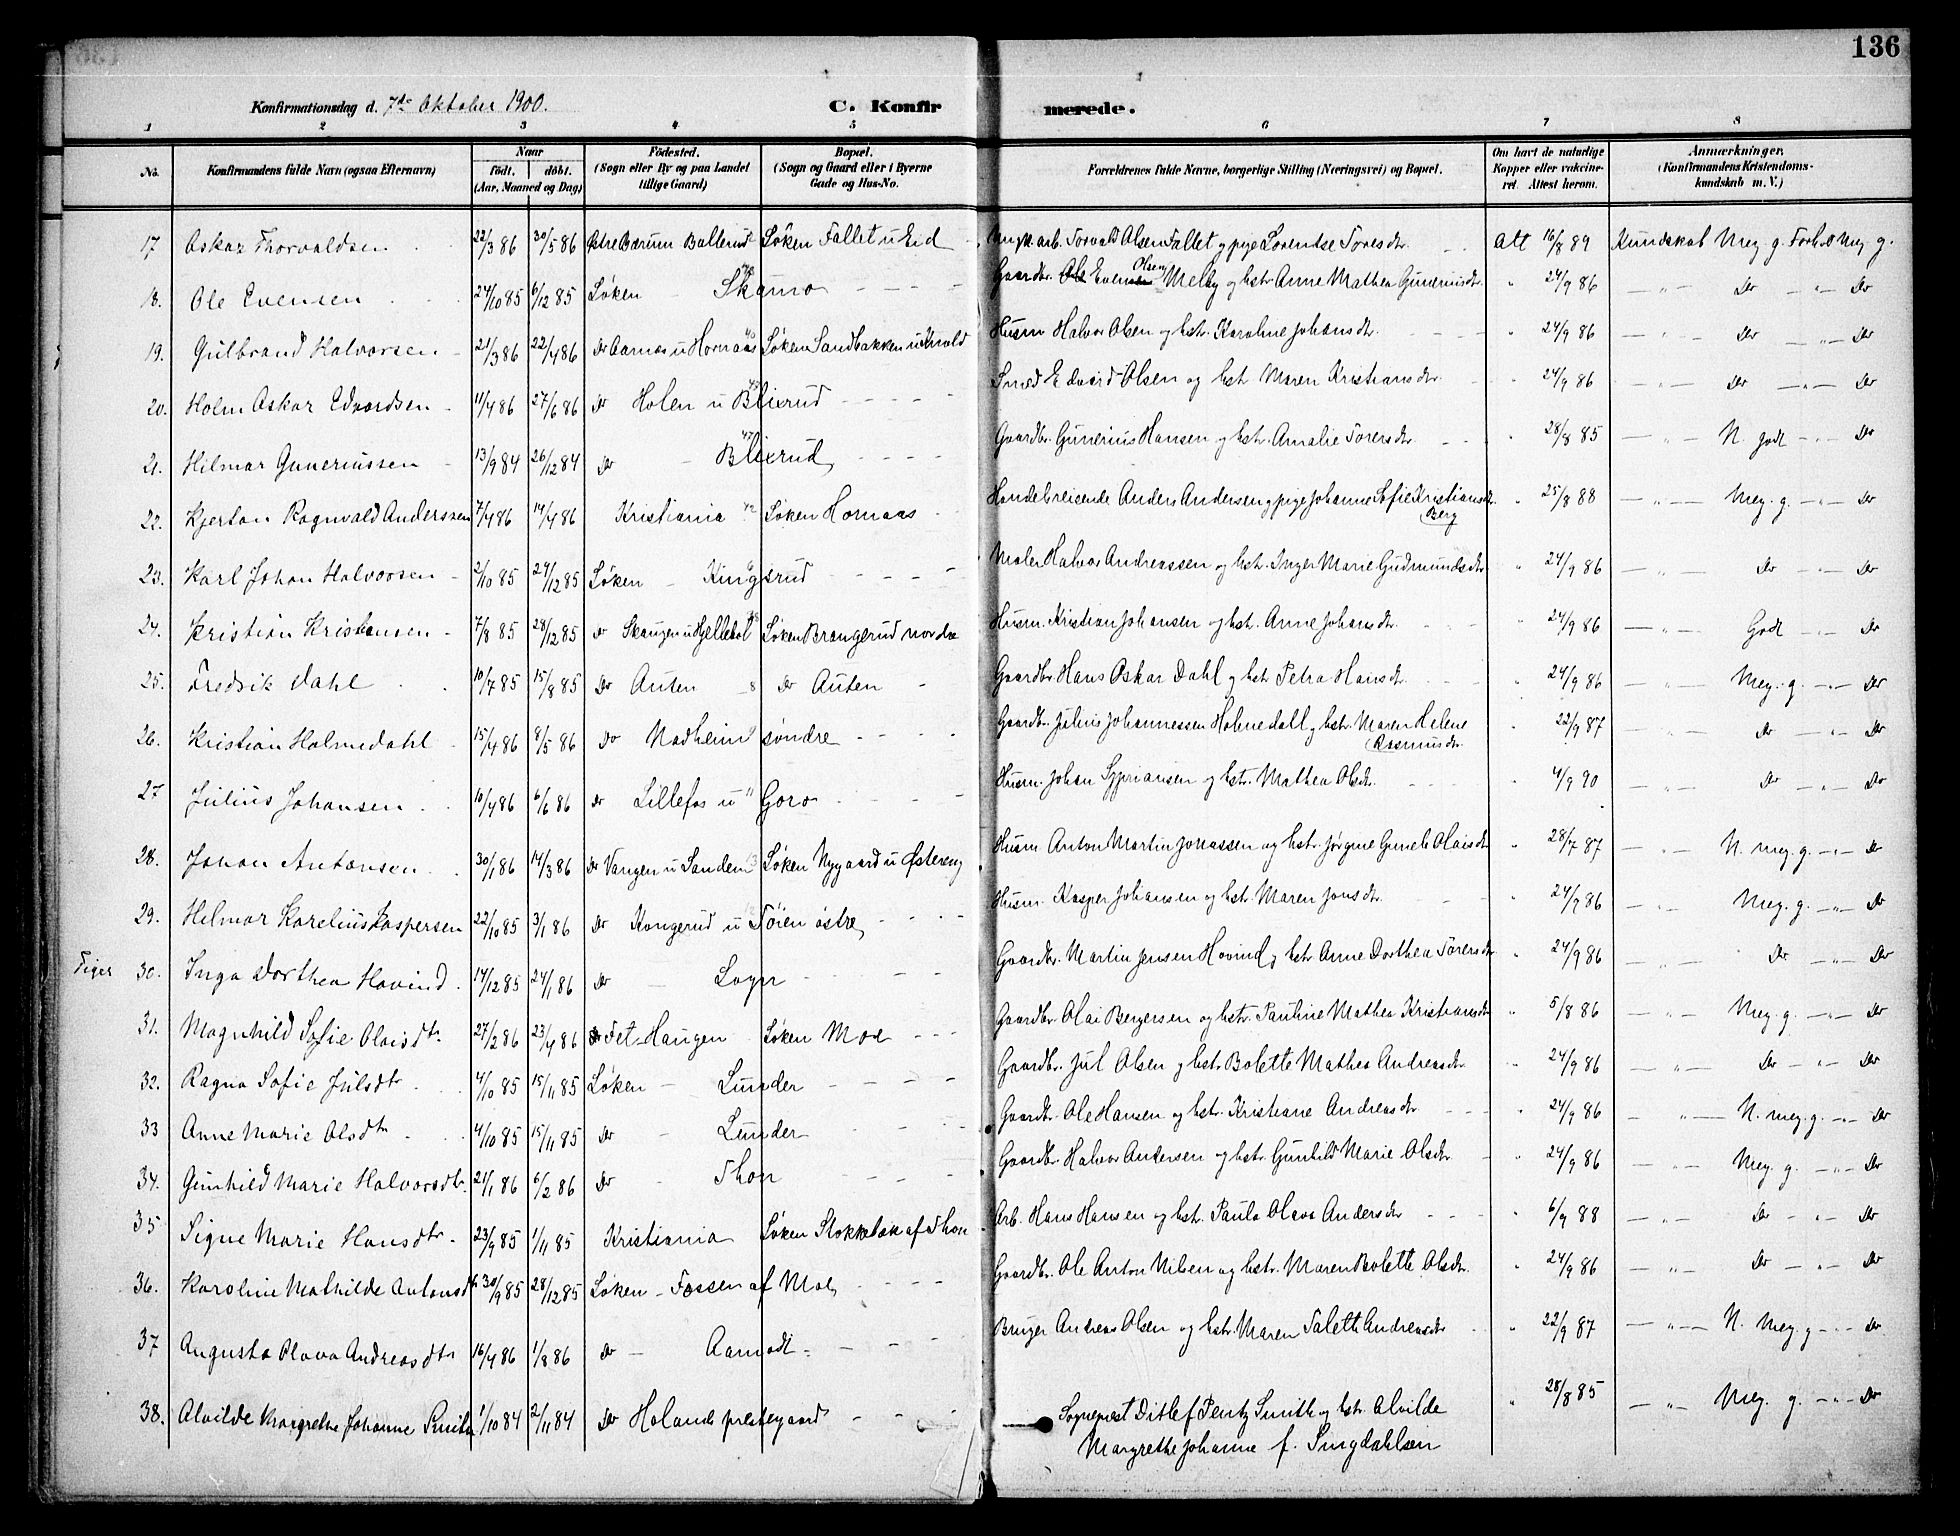 136
Konfirmationsdag d. 7de Oktober 1900. C. Konfirmerede.
1 2 3 4 5 6 7 8
No. Konfirmandens fulde Navn (ogsaa Efternavn) Naar födt. döbt. (Aar, Maaned og Dag) Födested. (Sogn eller By og paa Landet tillige Gaard) Bopæl. (Sogn og Gaard eller i Byerne Gade og Hus-No. Forældrenes fulde Navne, borgerlige Stilling (Næringsvei) og Bopæl. Om havt de naturlige Kopper eller vakcineret. Attest herom. Anmærkninger. (Konfirmandens Kristendomskundskab m. V.)
17. Oskar Thorvaldsen 22/3 86 30/5 86 Østre Bærum Ballerud Løken Fallet u Eid Ungk. arb. Torvald Olsen Fallet og pige Lorentse Toresdr. Att 16/8 89 Kundskab Meg. g. Forhold Meg g.
18. Ole Evensen 24/10 85 6/12 85 Løken - Skamo Gaardbr. Even Olsen Melby og hstr. Anne Mathea Gunerius dr. " 24/9 86 - " - Do - " - Do
19. Gulbrand Halvorsen 21/3 86 22/4 86 Do Aamos u Hornaas 40 Løken Sandbakken u Kvold Husm Halvor Olsen og hstr. Karoline Johans dr. " 24/9 86 - " - Do - " - Do
20. Holm Oskar Edvardsen 11/4 86 27/6 86 Do Holen u Blixrud Smed Edvard Olsen og hstr. Maren Kristians dr. " 24/9 86 - " - Do - " - Do
21. Hilmar Guneriussen 13/9 84 26/12 84 Do - 47 Blixrud Gaardbr. Gunerius Hansen og hstr. Amalie Torersdr. " 28/8 85 - " - N. godt - " - Do
22. Kjertan Ragnvald Anderssen 7/4 86 14/4 86 Kristiania 42 Løken Hornaas Handelsreisende Anders Andersen og pige Johanne Sofie Kristians dr. Berg " 25/8 88 - " - Meg. g. - " - Do
23. Karl Johan Halvorsen 2/10 85 24/12 85 Løken - Kingsrud Maler Halvor Andreassen og hstr. Inger Marie Gudmunds dr. " 24/9 86 - " - Do - " - Do
24. Kristian Kristiansen 7/8 85 28/12 85 Do Skaugen u Hjellebøl Løken Brangerud nordre Husm. Kristian Johansen og hstr. Anne Johans dr. " 24/9 86 - " - Godt - " - Do
25. Fredrik Dahl 10/7 85 15/8 85 Do Auten 8 Do Auten Gaardbr Hans Oskar Dahl og hstr Petra Hans dr. " 24/9 86 - " - Meg. g. - " - Do
26. Kristian Holmedahl 15/4 86 8/5 86 Do Nadheim søndre Gaardbr. Julius Johannessen Holmedahl og hstr. Maren Helene Rasmus dr. " 22/9 87 - " - Do - " - Do
27 Julius Johansen 10/4 86 6/6 86 Do Lillefos u 11 Goro Husm. Johan Sypriansen og hstr. Mathea Ols dr. " 4/9 90 - " - Do - " - Do
28. Johan Antonsen 30/1 86 14/3 86 Do Vangen u Sandem 13 Løken Nygaard u Østereng Husm Anton Martin Jonassen og hstr. Jørgine Gunelie Olais dr " 28/7 87 - " - N. meg. g. - " - Do
29. Hilmar Karelius Kaspersen 22/10 85 3/1 86 Do Kongerud u Tøien østre Husm. Kasper Johansen og hstr. Maren Jons dr. " 24/9 86 - " - Meg. g. - " - Do
Piger 30. Inga Dorthea Hovind 14/12 85 24/1 86 Do - Logn Gaardbr. Martin Jensen Hovind og hstr Anne Dorthea Torers dr. " 24/9 86 - " - Do - " - Do
31. Magnhild Sofie Olaisdtr. 27/2 86 23/4 86 Fet - Haugen Løken Moe Gaardbr. Olai Bergersen og hstr. Pauline Mathea Kristians dr " 5/8 86 - " - Meg. g. - " - Do
32. Ragna Sofie Julsdtr 4/10 85 15/11 85 Løken - Lunder Gaardbr. Jul Olsen og hstr. Bolette Mathea Andreas dr " 24/9 86 - " - Do - " - Do
33 Anne Marie Olsdtr. 4/10 85 15/11 85 Do - Lunder Gaardbr. Ole Hansen og hstr. Kristiane Andreas dr " 24/9 86 - " - N. meg. g. - " - Do
34. Gunhild Marie Halvorsdtr. 21/1 86 6/2 86 Do - Thon Gaardbr. Halvor Andersen og hstr. Gunhild Marie Olsdr. " 24/9 86 - " - Meg g. - " - Do
35 Signe Marie Hansdtr. 23/9 85 1/11 85 Kristiania Løken Stokkebæk af Thon Arb. Hans Hansen og hstr. Paula Olava Anders dr " 6/9 88 - " - Do - " - Do
36. Karoline Mathilde Antonsdtr 30/9 85 28/12 85 Løken - Fossen af Moe Gaardbr. Ole Anton Nilsen og hstr. Maren Bolette Olsdr. " 24/9 86 - " - Do - " - Do
37 Augusta Olava Andreasdtr 16/4 86 1/8 86 Do - Aamodt Bruger Andreas Olsen og hstr. Maren Taletth Andreasdr " 22/9 87 - " - N. Meg. g - " - Do
38. Alvilde Margrethe Johanne Smith 1/10 84 2/11 84 Do Hølands prestegaard Sogneprest Ditlef Pentz Smith og hstr. Alvilde Margrethe Johanne f. Smedahlsen " 28/8 85 - " - Meg. g. - " - Do